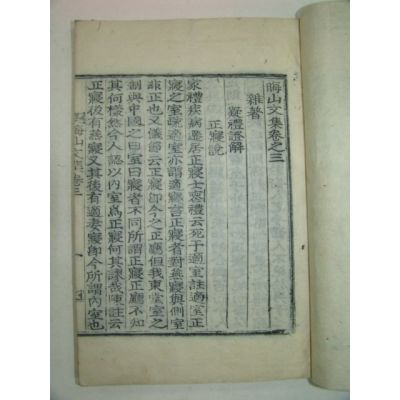 晦山文集卷之三
雜著
疑禮證解
正寢說
家禮疾病遷居正寢士喪禮云死于適室註適室正
寢之室疏適室亦謂適寢言正寢者對燕寢與側室
非正也又儀節云正寢即今之正廳但我東堂室之
制與中國之室曰寢者不同所謂正寢正廳不知
其何樣然今人認以內室爲正寢何其謬哉陳註云
正寢後有燕寢又其後有適妻寢卽今所謂內室也
晦山文集卷三